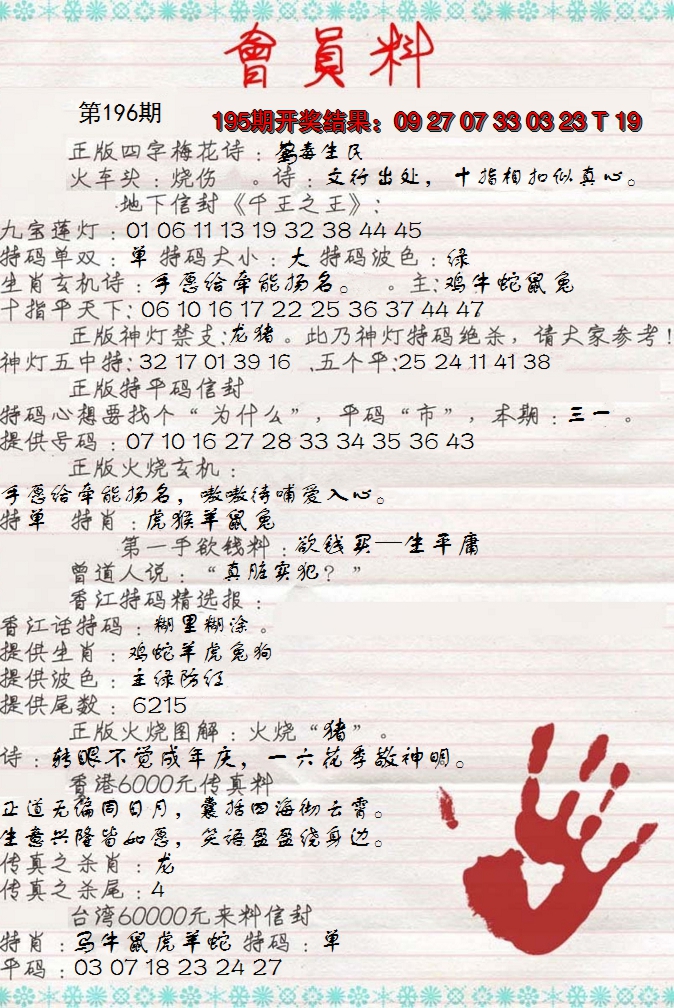 會員料
第196期
195期开奖结果：09 27 07 33 03 23 T 19
正版四字梅花诗：荼毒生民
火车头：烧伤 。诗：文行出处，十指相扣似真心。
地下信封《千王之王》：
九宝莲灯：01 06 11 13 19 32 38 44 45
特码单双：单 特码大小：大 特码波色：绿
生肖玄机诗：手愿给牵能扬名。 。主：鸡牛蛇鼠兔
十指平天下：06 10 16 17 22 25 36 37 44 47
正版神灯禁支：龙猪。此乃神灯特码绝杀，请大家参考！
神灯五中特：32 17 01 39 16 、五个平：25 24 11 41 38
正版特平码信封
特码心想要找个“为什么”，平码“市”，本期：三一 。
提供号码：07 10 16 27 28 33 34 35 36 43
正版火烧玄机：
手愿给牵能扬名，嗷嗷待哺爱入心。
特单 特肖：虎猴羊鼠兔
第一手欲钱料：欲钱买一生平庸
曾道人说：“真脏实犯？”
香江特码精选报：
香江话特码：糊里糊涂。
提供生肖：鸡蛇羊虎兔狗
提供波色：主绿防红
提供尾数：6215
正版火烧图解：火烧“猪”。
诗：转眼不觉成年庆，一六花季敬神明。
香港6000元传真料
正道无偏同日月，囊括四海彻云霄。
生意兴隆皆如愿，笑语盈盈绕身边。
传真之杀肖：龙
传真之杀尾：4
台湾60000元来料信封
特肖：马牛鼠虎羊蛇 特码：单
平码：03 07 18 23 24 27